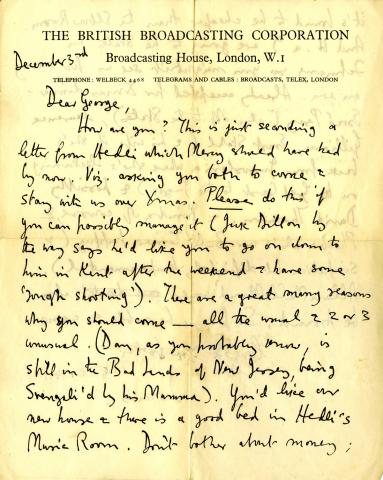 THE BRITISH BROADCASTING CORPORATION
Broadcasting House, London, W.1
TELEPHONE: WELBECK 4468 TELEGRAMS AND CABLES: BROADCASTS, TELEX, LONDON
December 3rd
Dear George,
How are you? This is just seconding a
letter from Hedli which Mercy should have had
by now. Viz. asking you both to come &
stay with us over Xmas. Please do this if
you can possibly manage it (Jack Dillon by
the way says he'd like you to go on down to
him in Kent after the weekend & have some
'rough shooting'). There are a great many reasons
why you should come — all the usual & 2 or 3
unusual. (Dan, as you probably know, is
still in the Bad Lands of New Jersey, being
Svengali'd by his Mamma). You'd like our
new house & there is a good bed in Hedli's
Music Room. Don't bother about money;